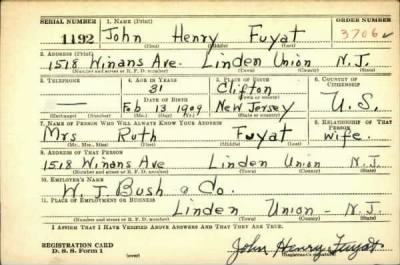 SERIAL NUMBER 1. NAME (Print) ORDER NUMBER
1192 John Henry Fuyat 3706
(First) (Middle) (Last)
2. ADDRESS (Print)
1518 Winans Ave. Linden Union N.J.
(Number and street or R. F. D. number) (Town) (County) (State)
3. TELEPHONE 4. AGE IN YEARS 5. PLACE OF BIRTH 6. COUNTRY OF CITIZENSHIP
31 Clifton
DATE OF BIRTH (Town or county)
— Feb 13 1909 New Jersey U.S.
(Exchange) (Number) (Mo.) (Day) (Yr.) (State or country)
7. NAME OF PERSON WHO WILL ALWAYS KNOW YOUR ADDRESS 8. RELATIONSHIP OF THAT PERSON
Mrs Ruth Fuyat Wife.
(Mr., Mrs., Miss) (First) (Middle) (Last)
9. ADDRESS OF THAT PERSON
1518 Winans Ave Linden Union N.J.
(Number and street or R. F. D. number) (Town) (County) (State)
10. EMPLOYER'S NAME
W. J. Bush & Co.
11. PLACE OF EMPLOYMENT OR BUSINESS
Linden Union - N.J.
(Number and street or R. F. D. number) (Town) (County) (State)
I AFFIRM THAT I HAVE VERIFIED ABOVE ANSWERS AND THAT THEY ARE TRUE.
REGISTRATION CARD
D. S. S. Form 1 John Henry Fuyat
(Registrant's signature)